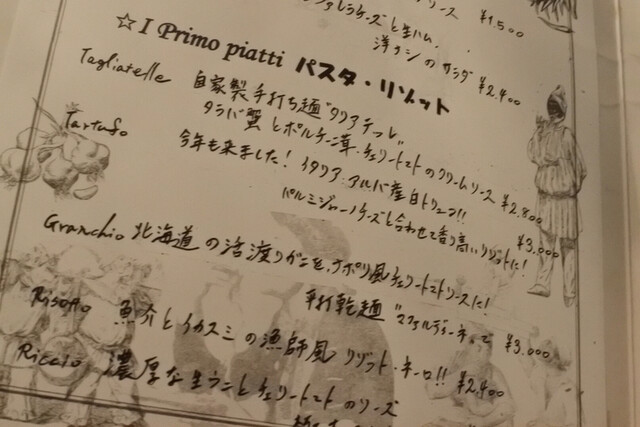 ソース ¥1,500
チーズと生ハム、
洋ナシのサラダ ¥2,400
☆I Primo piatti パスタ・リゾット
Tagliatelle 自家製手打ち麺"タリアテッレ"
タラバ蟹とポルチーニ茸・チェリートマトのクリームソース ¥2,800
Tartufo 今年も来ました！イタリア・アルバ産白トリュフ!!
パルミジャーノチーズと合わせて香り高いリゾットに！ ¥3,000
Granchio 北海道の活渡りガニを、ナポリ風チェリートマトソースに！
平打乾麺"マファルディーネ"で ¥3,000
Risotto 魚介とイカスミの漁師風リゾット・ネーロ!! ¥2,400
Riccio 濃厚な生うにとチェリートマトのソース